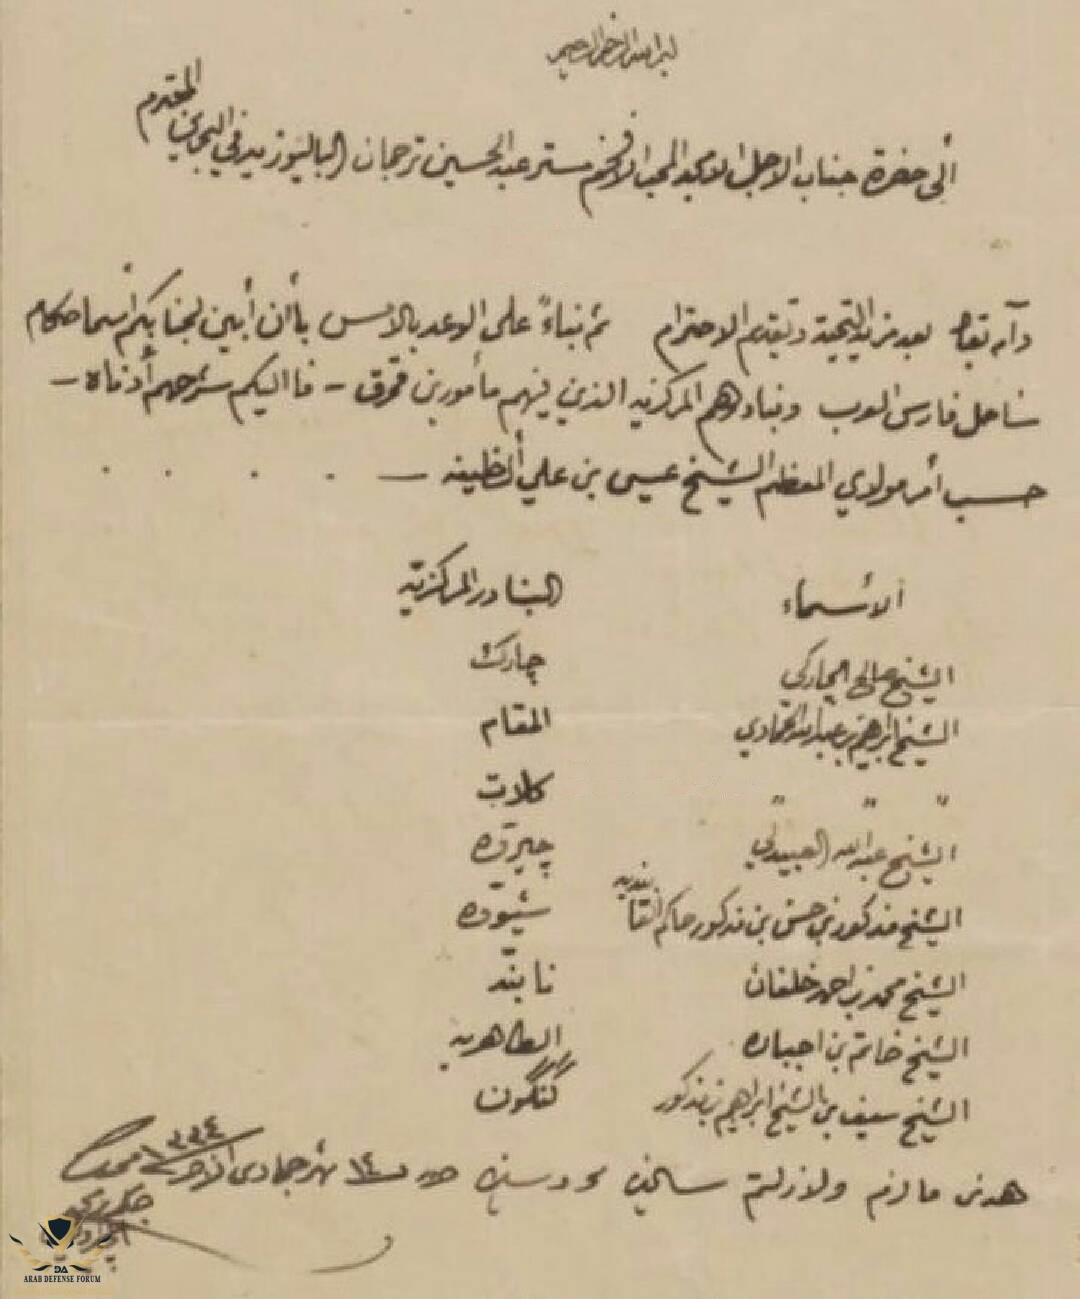 بسم الله الرحمن الرحيم
الى حضرة جناب الاجل الامجد المحب الافخم مستر عبد الحسين ترجمان الباليوزيه في البحرين المحترم
دام بقاه بعد مزيد التحية وتقديم الاحترام ثم بناءً على الوعد بالامس بأن أبين لجنابكم أسما حكام
ساحل فارس العرب وبنادرهم المركزيه الذين فيهم مأمورين قمرق – فاليكم شرحهم أدناه –
حسب أمر مولاي المعظم الشيخ عيسى بن علي ألخليفه – . . . .
الأسماء البنادر المركزيه
الشيخ صالح الچاركي چارك
الشيخ ابراهيم بن عبدالله الحمادي المقام
" " " كلات
الشيخ عبدالله العبيدلي چيروه
الشيخ مذكور بن حسن بن مذكور حاكم القابنديه شيوه
الشيخ محمد بن احمد خلفان نابند
الشيخ حاتم بن اجباره الطاهريه
الشيخ سيف بن الشيخ ابراهيم بن مذكور كنگون
هذا ما لزم ولازلتم سالمين محروسين ١٤ شهر جمادى الاخر ١٣٣٤ محمد
ARAB DEFENSE FORUM